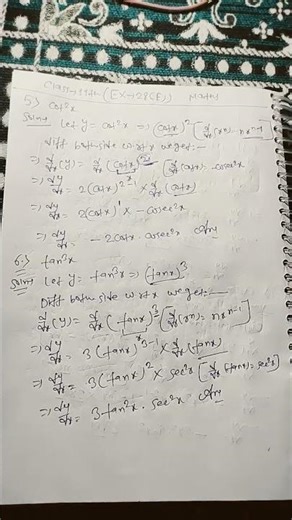 Class→11th (EX→28(E)) Math
5.) cot²x
Soln: Let y = cot²x ⇒ (cotx)² [d/dx(xⁿ) = nxⁿ⁻¹]
diff both side w.r.t x we get:—
⇒ d/dx(y) = d/dx(cotx)² [d/dx cotx = -cosec²x]
⇒ dy/dx = 2(cotx)²⁻¹ × d/dx(cotx)
⇒ dy/dx = 2(cotx)¹ × -cosec²x
⇒ dy/dx = -2cotx·cosec²x Ans
6.) tan³x
Soln: Let y = tan³x ⇒ (tanx)³
Diff both side w.r.t x we get:—
d/dx(y) = d/dx(tanx)³ [d/dx(xⁿ) = nxⁿ⁻¹]
⇒ dy/dx = 3(tanx)³⁻¹ × d/dx(tanx)
⇒ dy/dx = 3(tanx)² × sec²x [d/dx(tanx) = sec²x]
⇒ dy/dx = 3tan²x · sec²x Ans